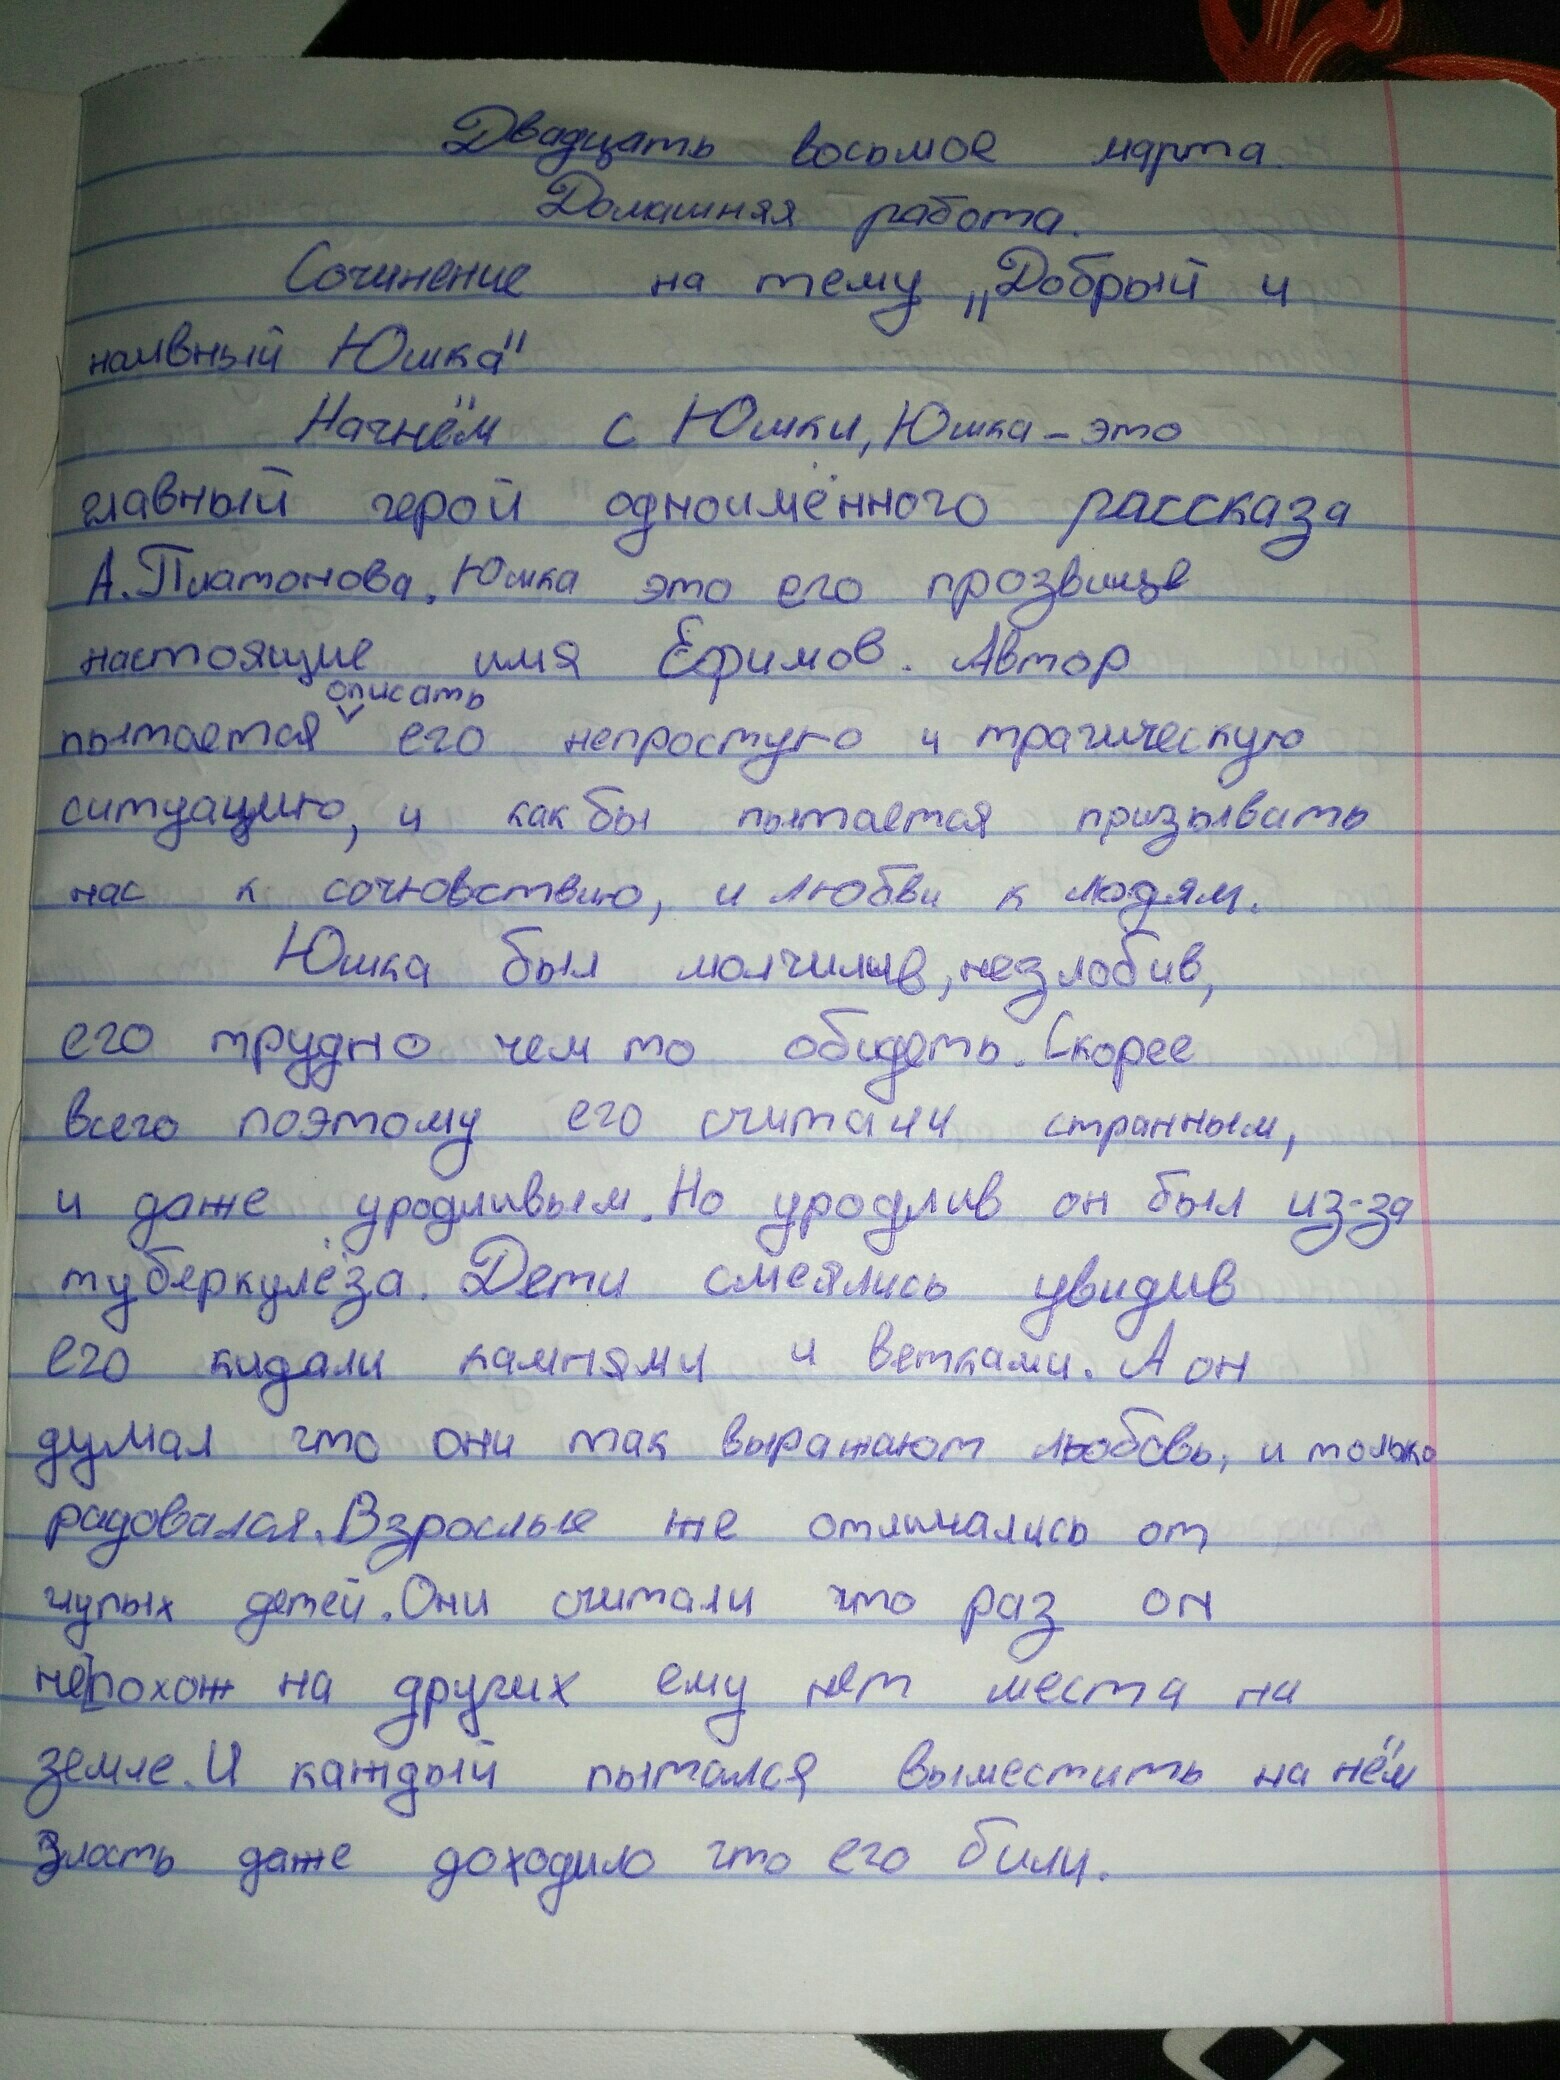 Двадцать восьмое марта.
Домашняя работа.
Сочинение на тему „Добрый и
наивный Юшка"
Начнём с Юшки, Юшка - это
главный герой одноимённого рассказа
А. Платонова. Юшка это его прозвище
настоящие имя Ефимов. Автор
описать
пытается его непростую и трагическую
ситуацию, и как бы пытается призывать
нас к сочювствию, и любви к людям.
Юшка был молчилив, незлобив,
его трудно чем то обидеть. Скорее
всего поэтому его считали странным,
и даже уродливым. Но уродлив он был из-за
туберкулёза. Дети смеялись увидив
его кидали камнями и ветками. А он
думал что они так выражают любовь, и только
радовался. Взрослые же отличались от
глупых детей. Они считали что раз он
непохож на других ему нет места на
земле. И каждый пытался выместить на нём
злость даже доходило что его били.